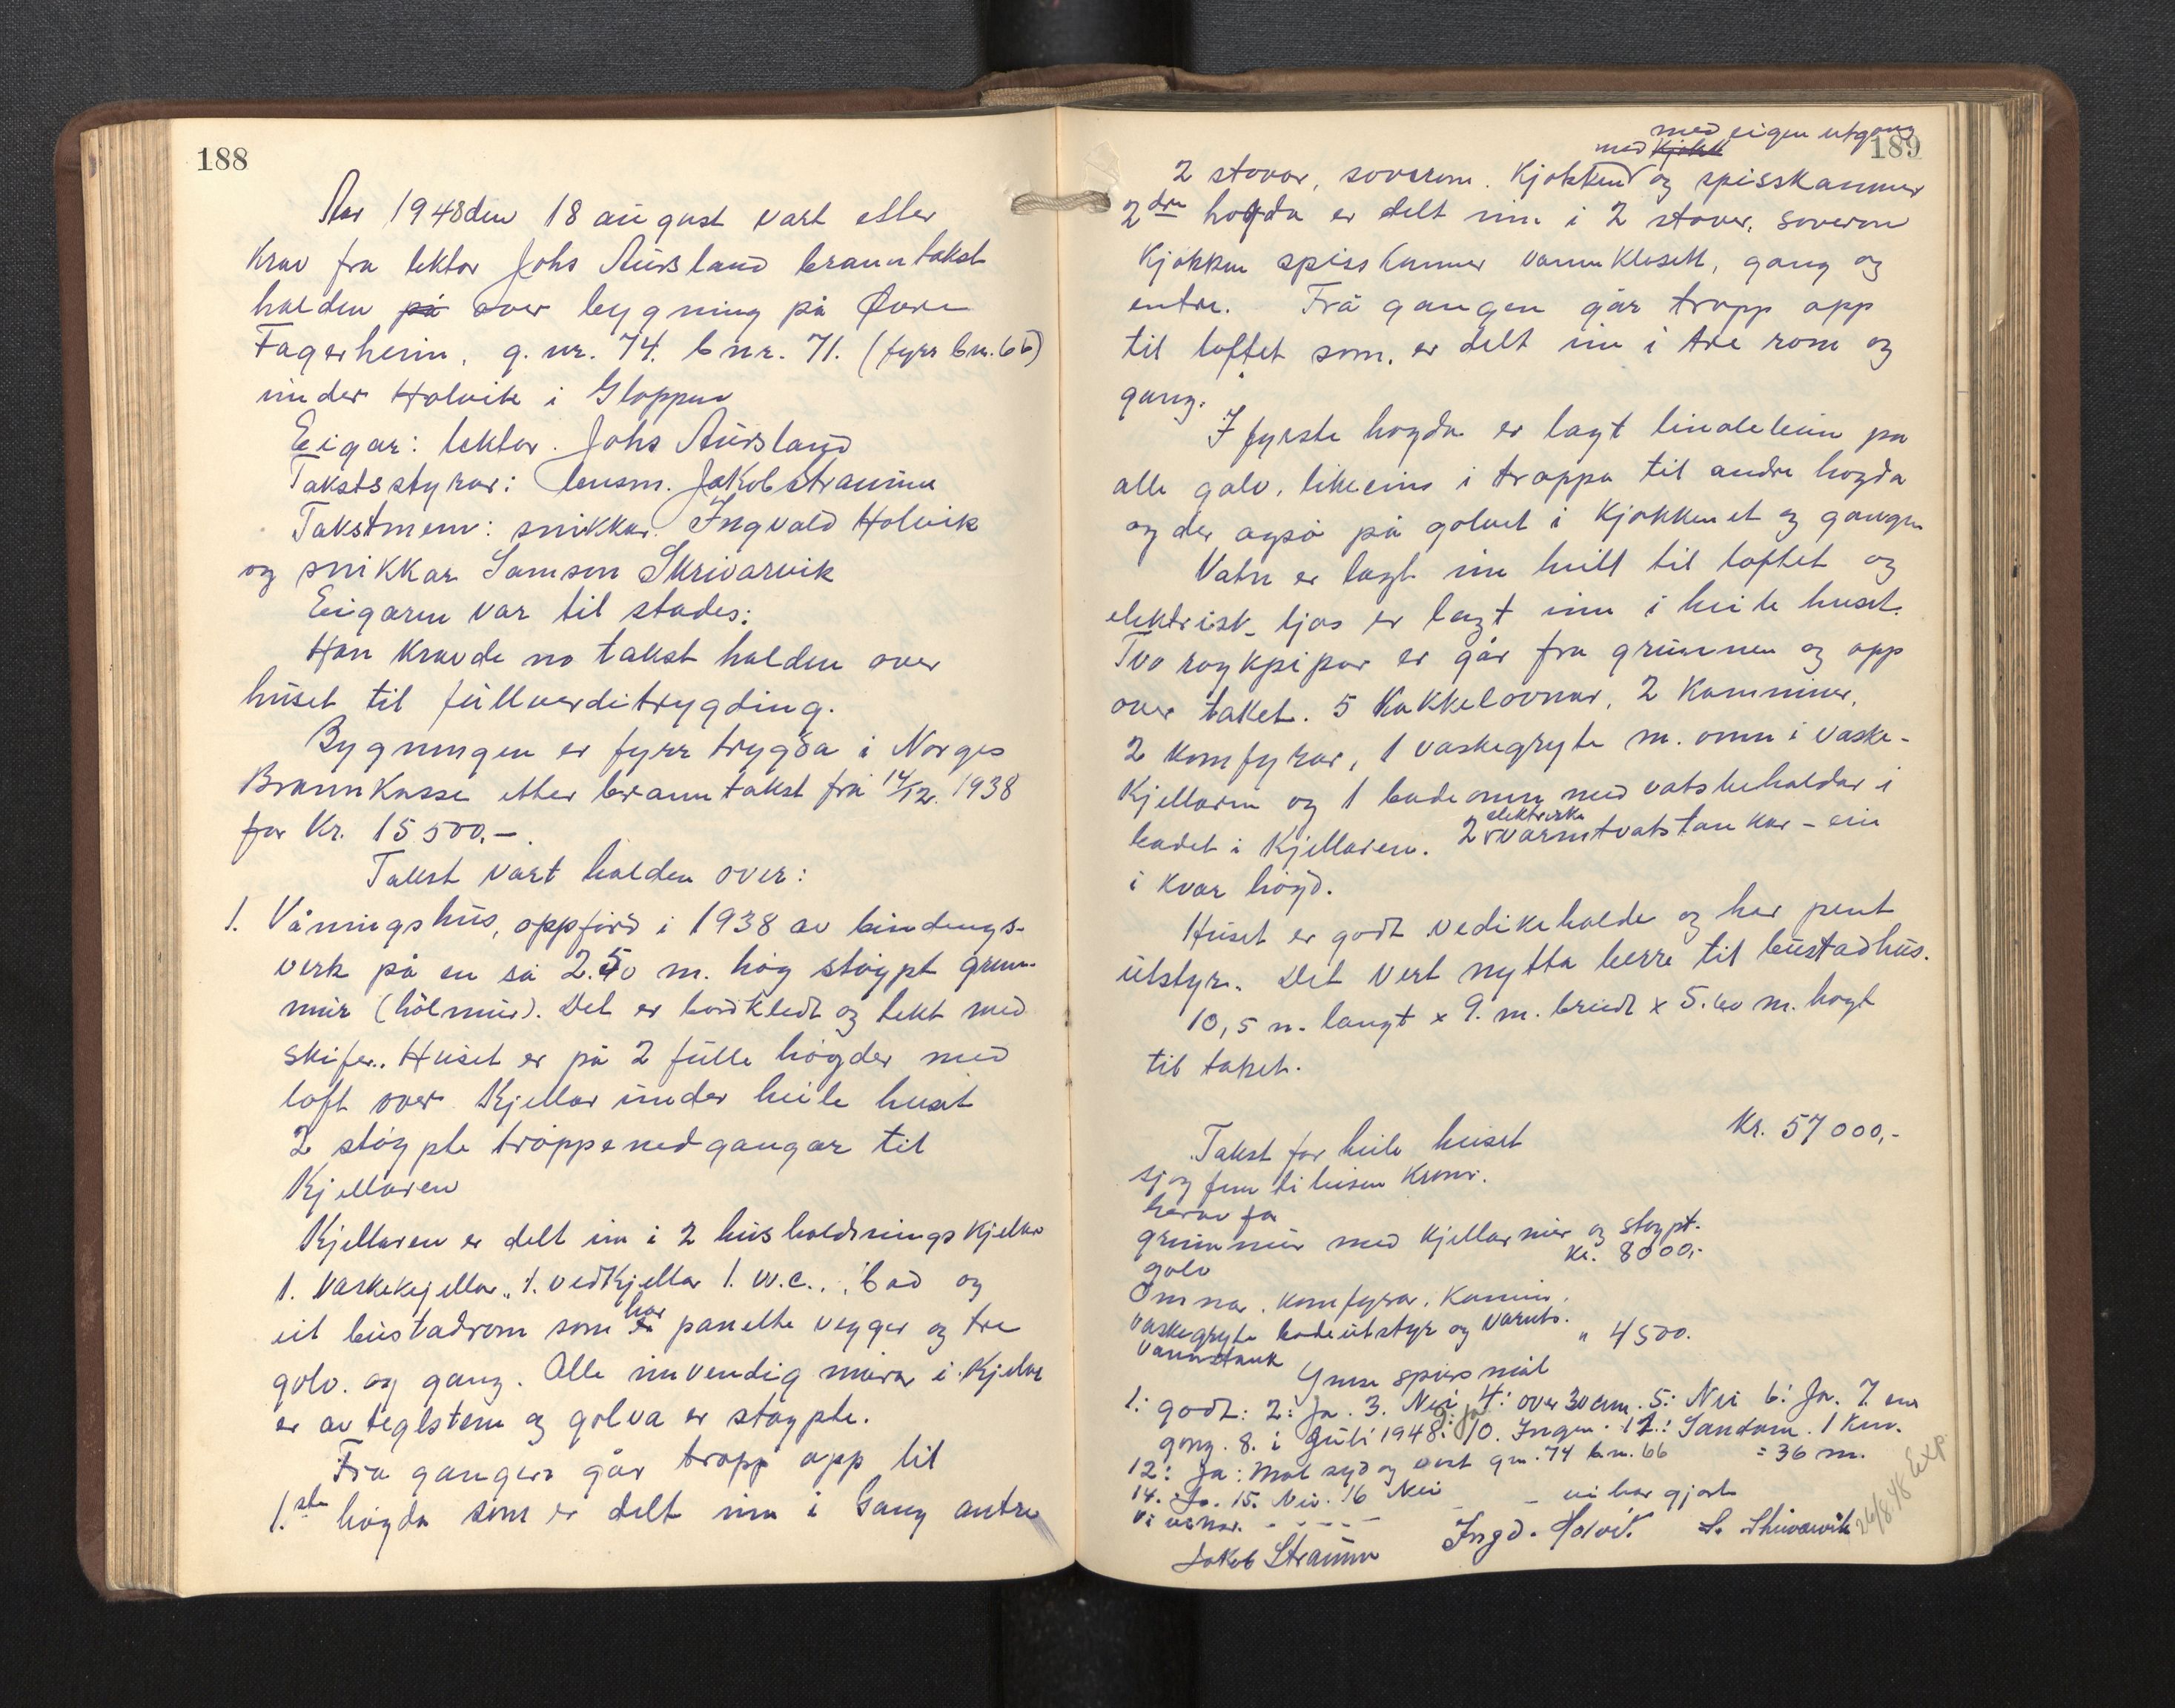 188
Aar 1948 den 18 august vart etter
krav fra lektor Johs Aursland branntakst
halden på over bygning på Øvre
Fagerheim, g.nr. 74. bnr. 71. (fyrr bn. 66)
under Holvik i Gloppen
Eigar: lektor. Johs Aursland
Takstsstyrar: lensm. Jakob Straume
Takstmenn: snikkar Ingvald Holvik
og snikkar Samson Skrivarvik
Eigaren var til stades.
Han kravde no takst halden over
huset til fullverditrygding.
Bygningen er fyrr trygda i Norges
Brannkasse etter branntakst frå 14/12. 1938
for Kr. 15500,-.
Takst vart halden over:
1. Våningshus, oppførd i 1938 av bindings-
verk på en så 2.50 m. høg støypt grun-
mur (hólmur). Det er bordkledt og tekt med
skifer.. Huset er på 2 fulle høgder med
loft over. Kjellar under heile huset
2 støypte troppenedgangar til
Kjellaren
Kjellaren er delt inn i 2 husholdningskjellar
1. vaskekjellar., 1. vedkjellar 1. w.c., bad og
eit bustadrom som har panelte vegger og tre
golv. og gang. Alle innvendig murar i Kjellar
er av teglstein og golva er støypte.
Fra gangen går tropp opp til
1.ste høgda som er delt inn i Gang antre
189
med eigen utgang
med Kjøkk
2 stovor, soverom. Kjøkken og spisskammer
2dre høgda er delt inn i 2 stover, soverom
Kjøkken spisskammer vannklosett, gang og
entre. Frå gangen går tropp opp
til loftet som er delt inn i tre rom og
gang.
I fyrste høgda er lagt linoleum på
alle golv, likeeins i trappa til andre høgda
og der også på golvet i Kjøkkenet og gangen
Vatn er lagt inn heilt til loftet og
elektrisk ljos er lagt inn i heile huset.
Tvo røykpipor er går fra grunnen og opp
over taket. 5 Kakkelovnar, 2 Kaminer,
2 komfyrar, 1 vaskegryte m. omn i vaske-
Kjellaren og 1 badeomn med vatsbehaldar i
badet i Kjellaren. 2 elektriske varmtvatstankar - ein
i kvar høgd.
Huset er godt vedikehalde og har pent
utstyr. Det vert nytta berre til bustadhus.
10,5 m. langt x 9. m. breidt x 5.60 m. høgt
til taket.
Takst for heile huset Kr. 57000,-
sjog fem ti tusen Kroner.
herav for
grunnmur med Kjellarmur og støypt-
golv Kr. 8000,-
Omnar. komfyrar. Kamin.
vaskegryte badeutstyr og varmts.
vannstank " 4500.
Ymse spursmål
1: godt: 2: Ja. 3. Nei 4: over 30 cm. 5: Nei 6: Ja. 7. ein
gong. 8. i Juli 1948. 9: ja 10. Ingen. 11.: Sandane. 1 km.
12: Ja: Mot syd og aust gn. 74 bn. 66 = 36 m.
14. Ja. 15. Nei. 16 Nei
Vi viknar. - - - - - - vi har gjort
Jakob Straume Ingv. Holvik S. Skrivarvik
26/8.48 Exp.